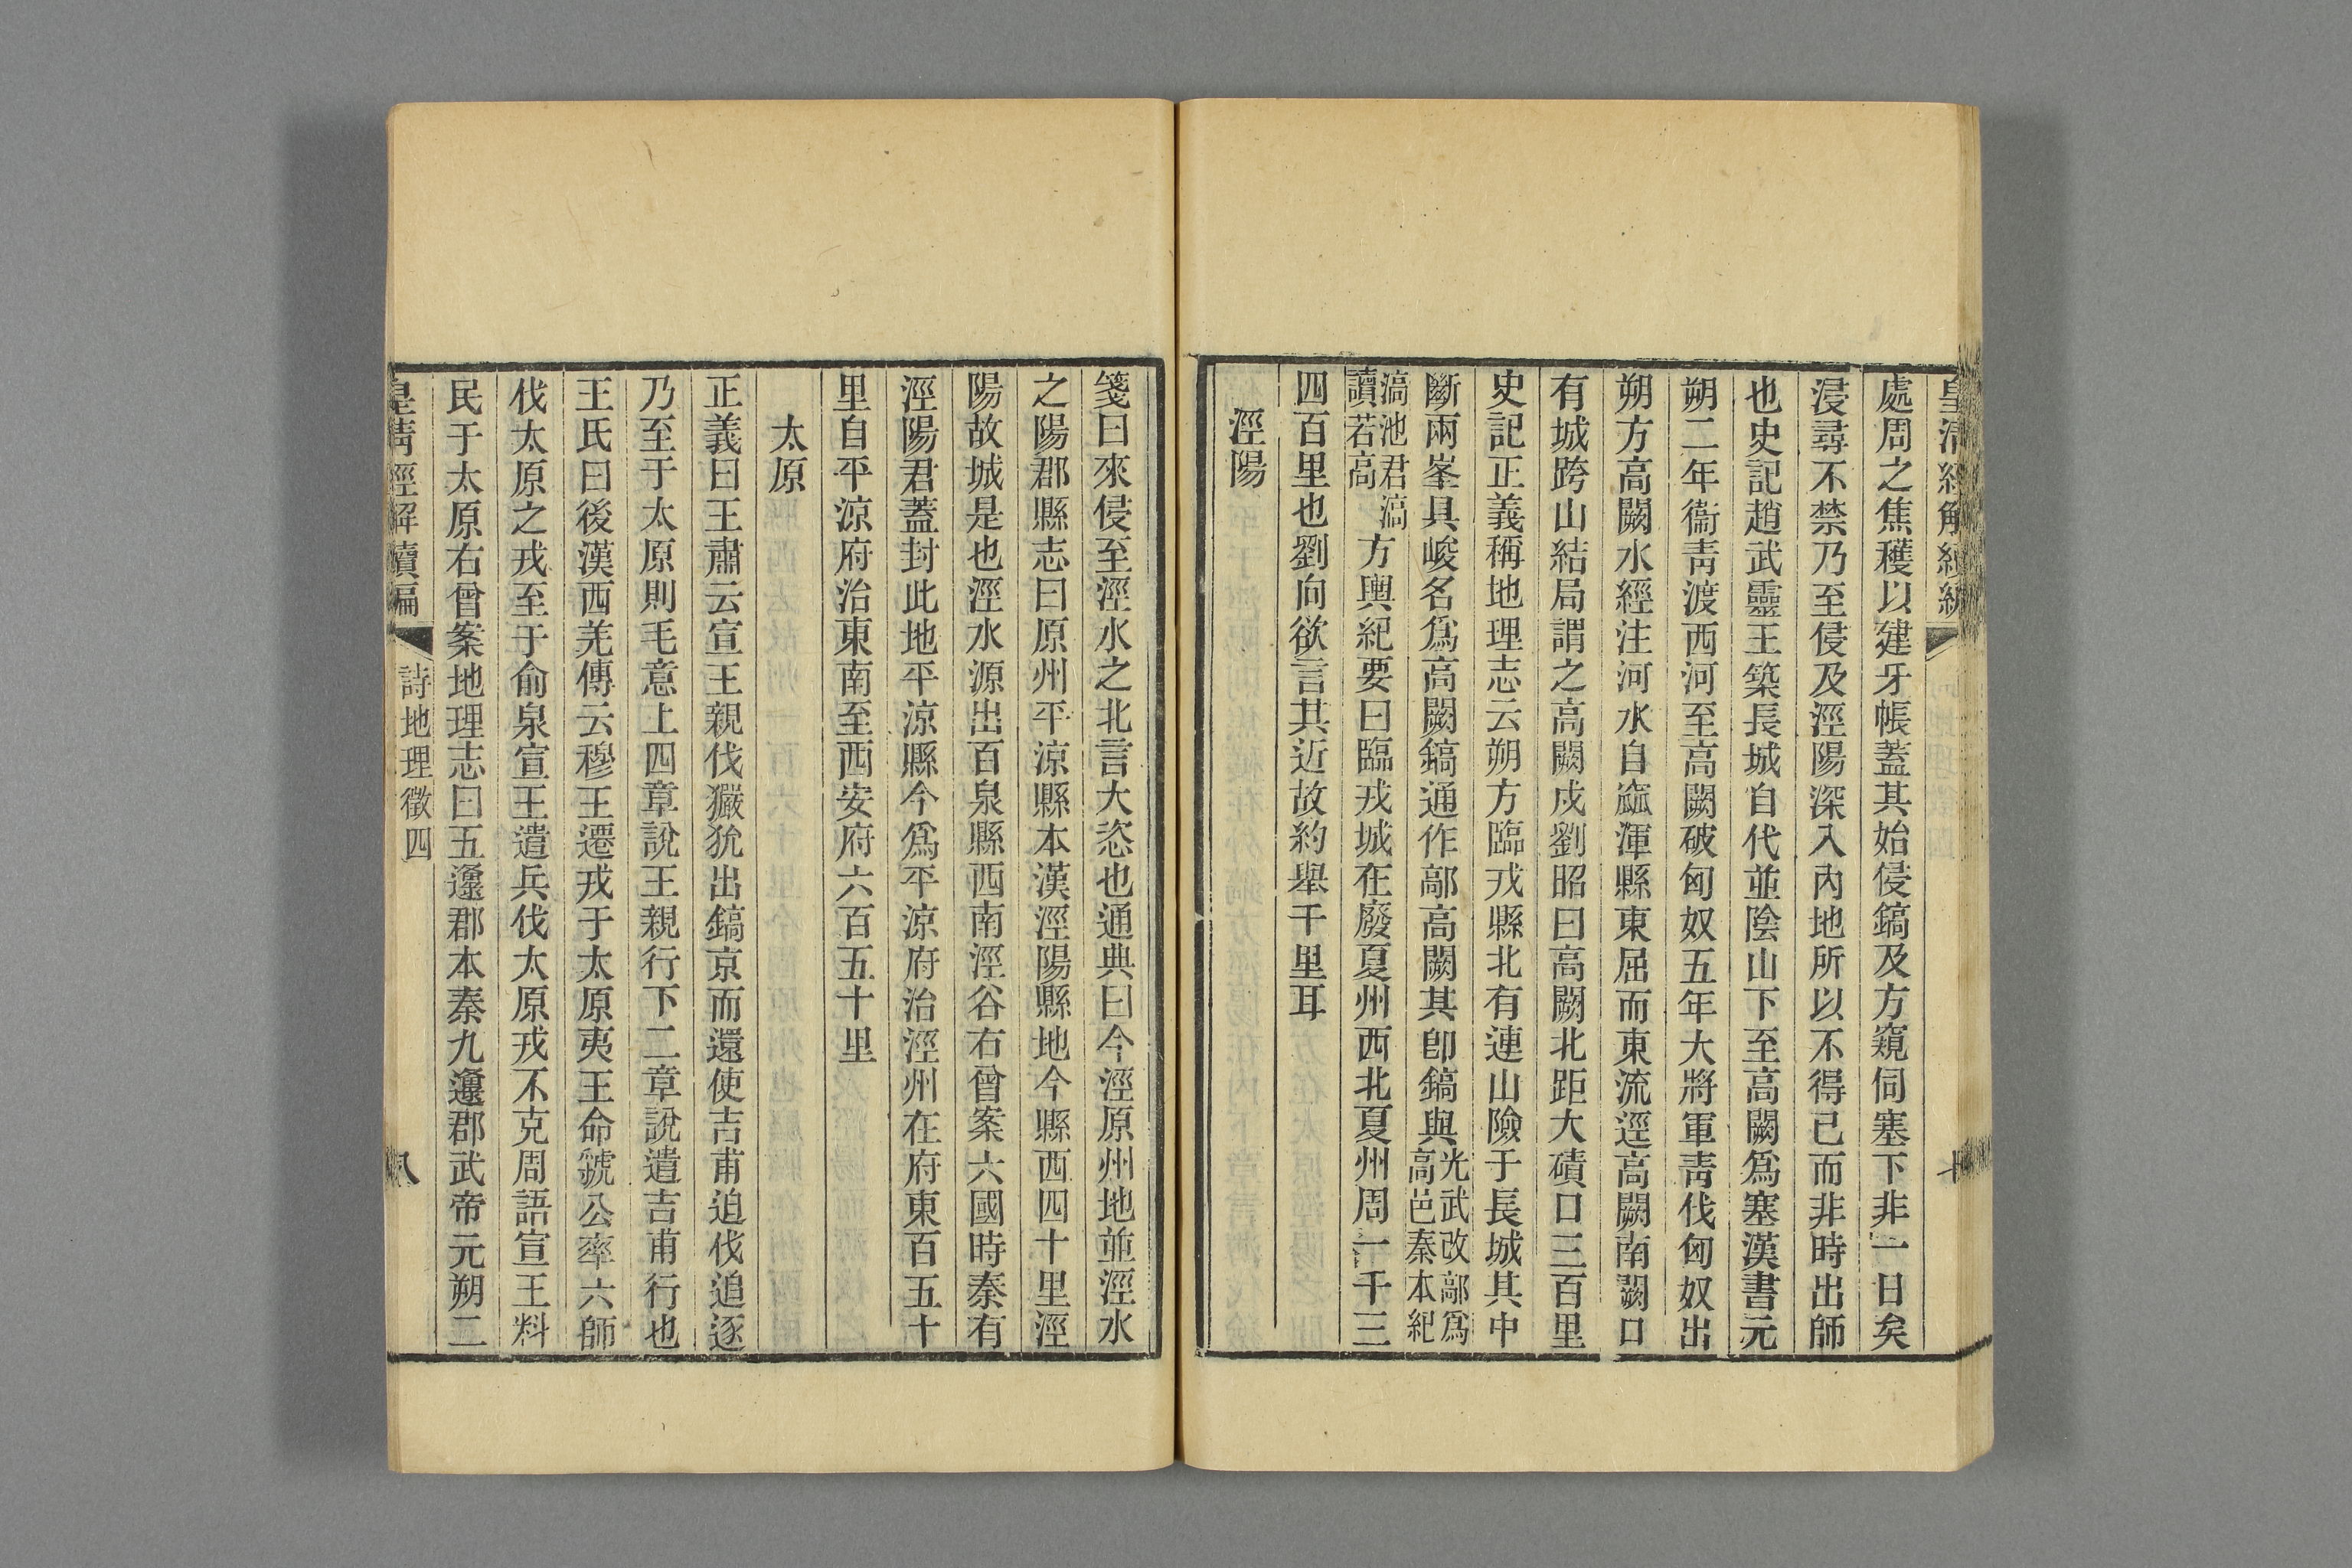 皇清經解續編
處周之焦穫以建牙帳蓋其始侵鎬及方窺伺塞下非一日矣
浸尋不禁乃至侵及涇陽深入內地所以不得已而非時出師
也史記趙武靈王築長城自代並陰山下至高闕爲塞漢書元
朔二年衞靑渡西河至高闕破匈奴五年大將軍靑伐匈奴出
朔方高闕水經注河水自窳渾縣東屈而東流逕高闕南闕口
有城跨山結局謂之高闕戍劉昭曰高闕北距大磧口三百里
史記正義稱地理志云朔方臨戎縣北有連山險于長城其中
斷兩峯具峻名爲高闕鎬通作鄗高闕其卽鎬與光武改鄗爲高邑秦本紀
滈池君滈讀若高方輿紀要曰臨戎城在廢夏州西北夏州周一千三
四百里也劉向欲言其近故約舉千里耳
涇陽
箋曰來侵至涇水之北言大恣也通典曰今涇原州地並涇水
之陽郡縣志曰原州平涼縣本漢涇陽縣地今縣西四十里涇
陽故城是也涇水源出百泉縣西南涇谷右曾案六國時秦有
涇陽君蓋封此地平涼縣今爲平涼府治涇州在府東百五十
里自平涼府治東南至西安府六百五十里
太原
正義曰王肅云宣王親伐玁狁出鎬京而還使吉甫迫伐追逐
乃至于太原則毛意上四章說王親行下二章說遣吉甫行也
王氏曰後漢西羌傳云穆王遷戎于太原夷王命虢公率六師
伐太原之戎至于俞泉宣王遣兵伐太原戎不克周語宣王料
民于太原右曾案地理志曰五邍郡本秦九邍郡武帝元朔二
皇清經解續編 詩地理徵四 八